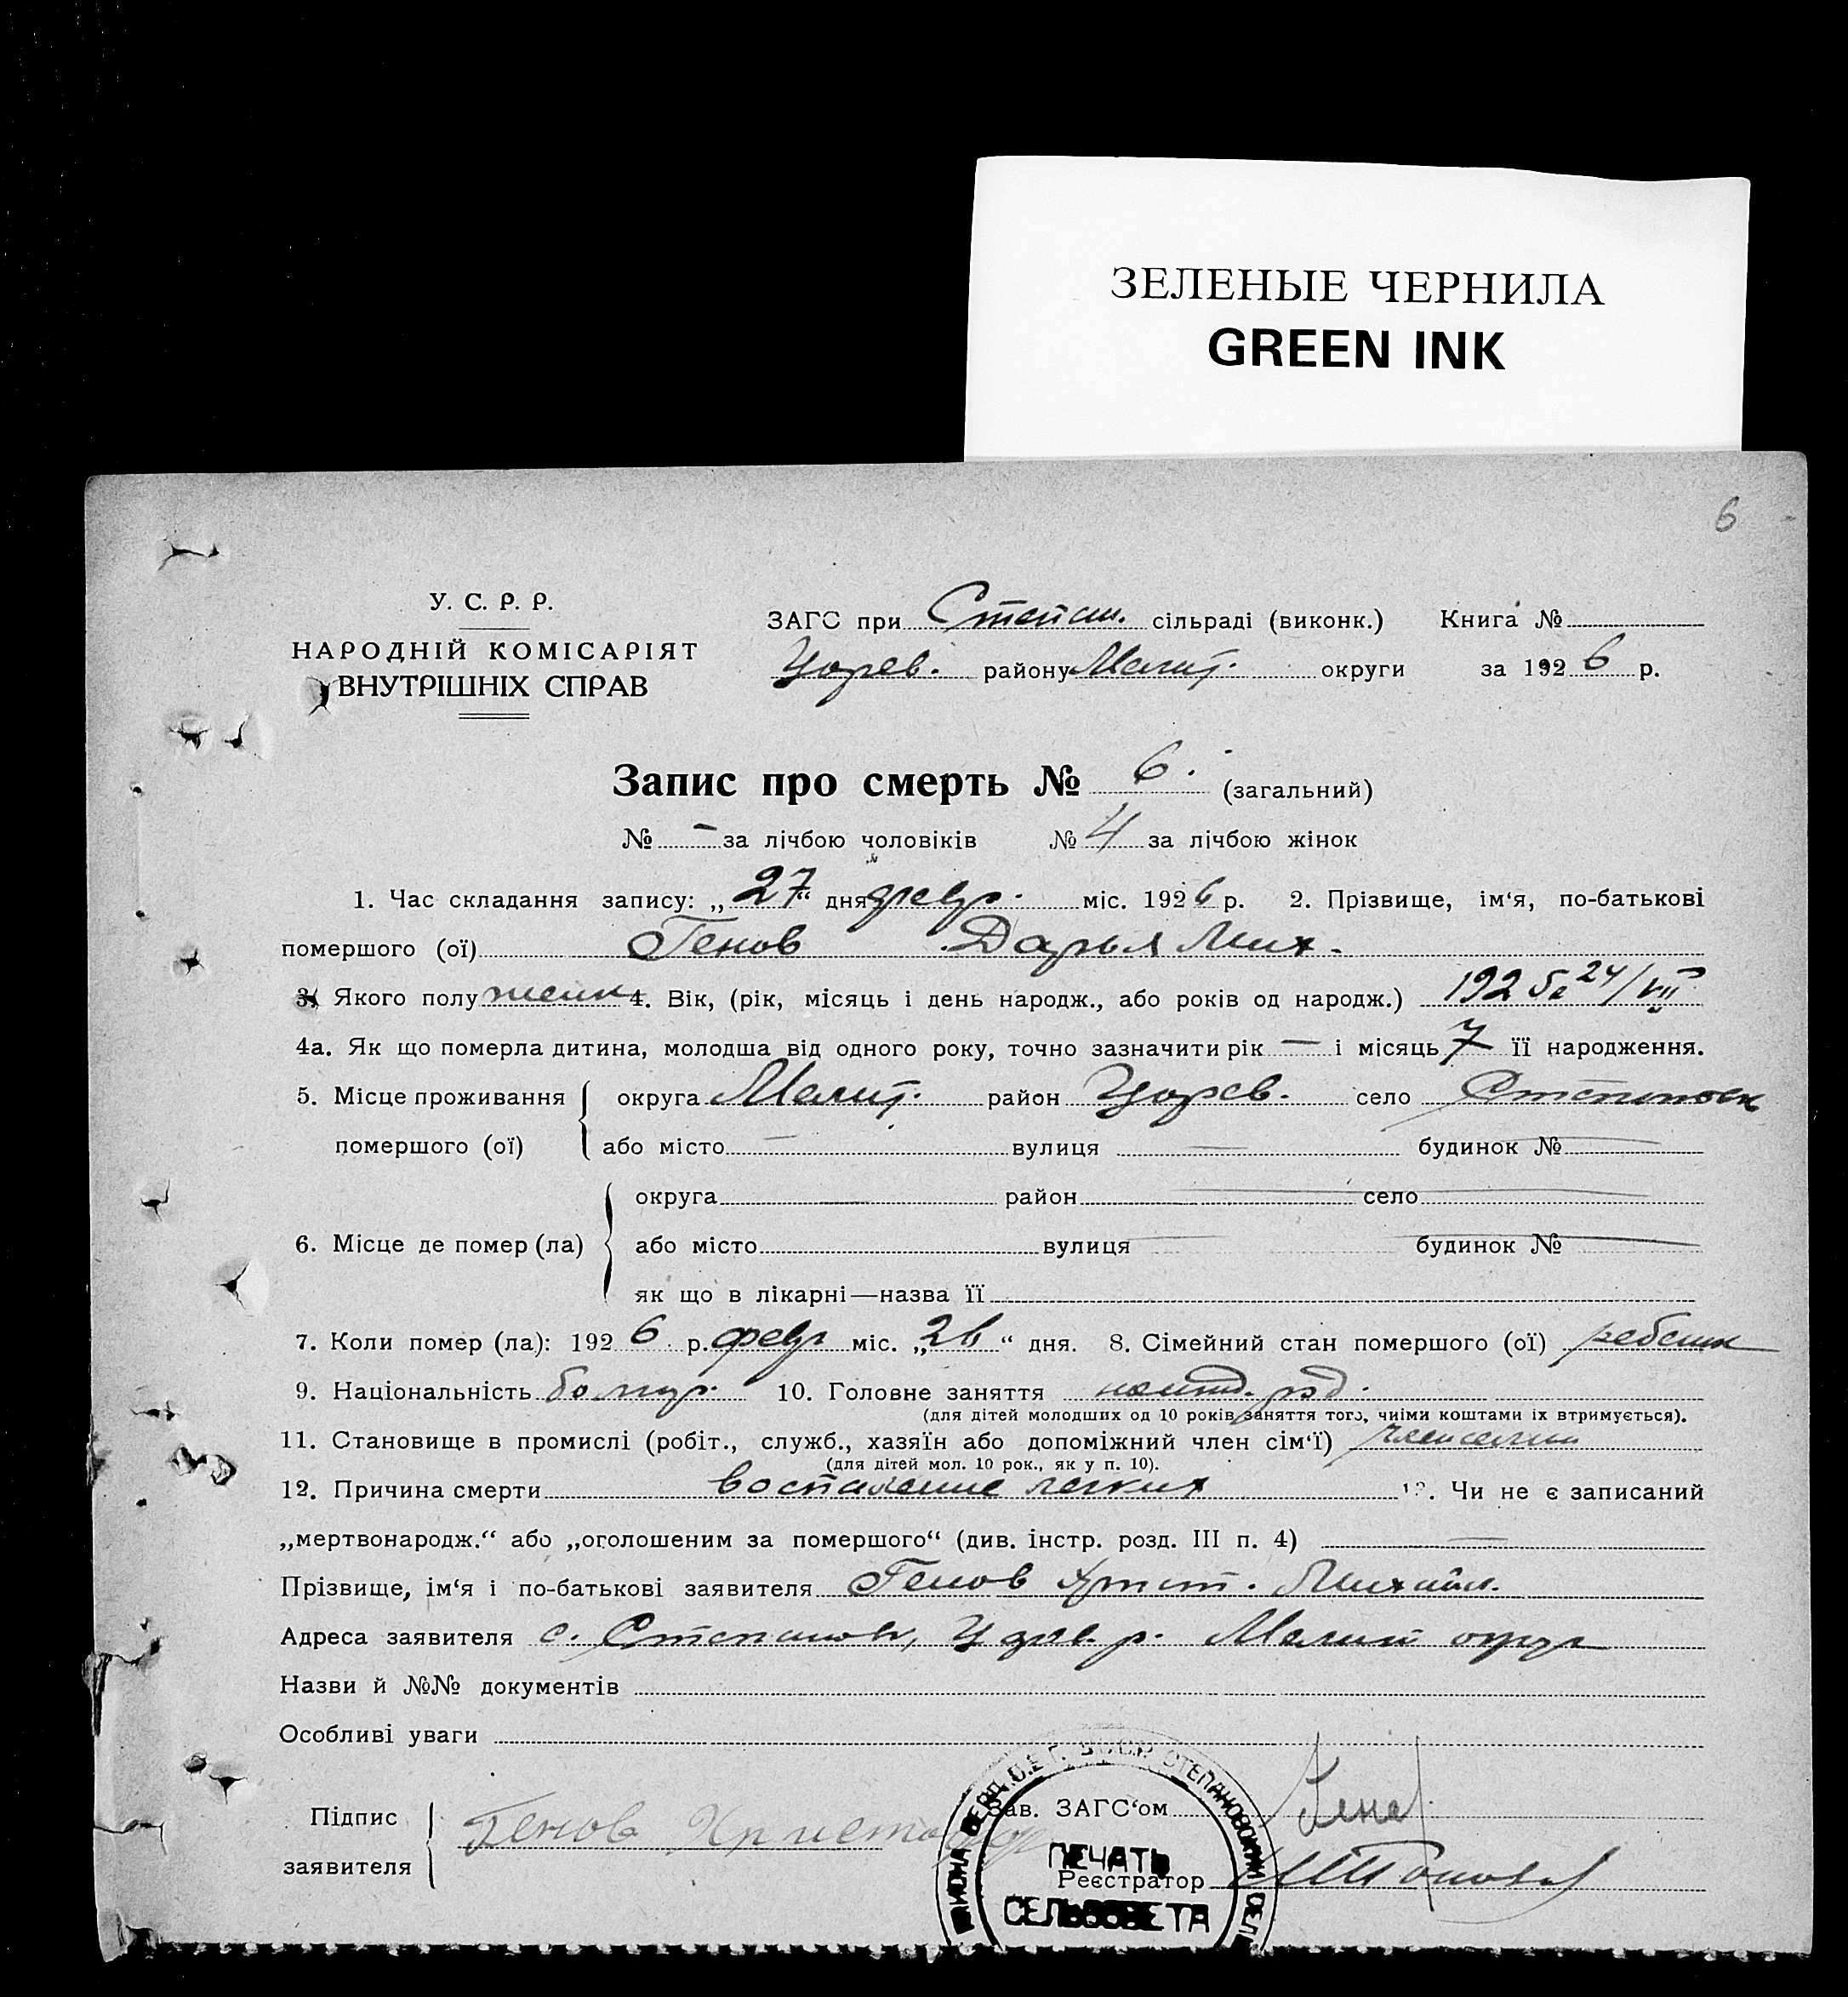 ЗЕЛЕНЫЕ ЧЕРНИЛА
GREEN INK
6
У. С. Р. Р.
НАРОДНІЙ КОМІСАРІЯТ
ВНУТРІШНІХ СПРАВ
ЗАГС при Степан. сільраді (виконк.) Книга №
Цорев. району Мелит. округи за 1926 р.
Запис про смерть № 6. (загальний)
№ — за лічбою чоловіків № 4 за лічбою жінок
1. Час складання запису: „27“ дня февр. міс. 1926 р. 2. Прізвище, ім‘я, по-батькові
помершого (ої) Генов Дарья Мих.
3. Якого полу женск 4. Вік, (рік, місяць і день народж., або років од народж.) 1925 г 24/VII
4а. Як що померла дитина, молодша від одного року, точно зазначити рік — і місяць 7 її народження.
5. Місце проживання помершого (ої) округа Мелит. район Цорев. село Степановк
або місто — вулиця — будинок № —
6. Місце де помер (ла) округа — район — село —
або місто вулиця — будинок № —
як що в лікарні—назва її
7. Коли помер (ла): 1926 р. февр міс. „26“ дня. 8. Сімейний стан помершого (ої) ребенок
9. Національність болгар. 10. Головне заняття
(для дітей молодших од 10 років заняття того, чиїми коштами їх втримується).
11. Становище в промислі (робіт., служб., хазяїн або допоміжний член сім‘ї) член семьи
(для дітей мол. 10 рок., як у п. 10).
12. Причина смерти воспаление легких 13. Чи не є записаний
„мертвонародж.“ або „оголошеним за помершого“ (див. інстр. розд. III п. 4) —
Прізвище, ім‘я і по-батькові заявителя Генов Христ. Михайл.
Адреса заявителя с. Степановк, Цорев. р. Мелит округ
Назви й №№ документів
Особливі уваги
Підпис заявителя Генов Христофор
Зав. ЗАГС‘ом
Реєстратор
СТЕПАНОВСКИЙ СЕЛ
ПЕЧАТЬ
СЕЛЬСОВЕТА